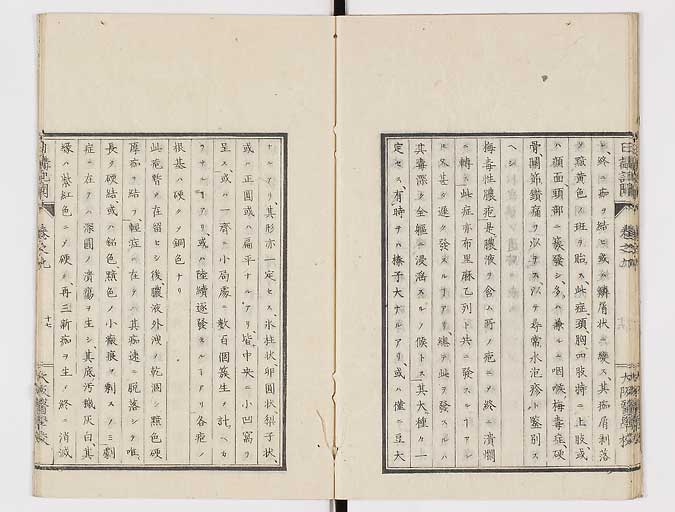 ヒ、終ニ痂ヲ結ヒ或ハ鱗屑状ニ變ス、其痂屑剥落
黄色ノ斑ヲ貽ス此症、頭胸四肢特ニ上肢或
ハ顔面頭部ニ蔟發シ、多ハ兼ルニ咽喉梅毒症、硬
骨關節鑽痛ヲ以テス、以テ尋常水泡疹ト鑒別ス
ヘシ
梅毒性膿疱是、膿液ヲ含ム所ノ疱ニメ終ニ潰爛
ニ轉ス此症亦布里麻乙列ト共ニ發スルアリ
ヒ甚タ遅ク發スルアリ、總テ此ヲ發スルハ
其毒深ク全軀ニ浸淫スルノ候トス、其大種々一
定セス、有時テハ榛子大ナルアリ、或ハ僅ニ豆大
日講記聞
卷之九
大阪醫學校
ナルアリ、其形亦一定セス、氷柱状卵圓状、梨子状、
或ハ正圓或ハ扁平ナルアリ皆中央ニ小凹窩ヲ
呈ス或ハ一齊ニ小局處ニ數百個簇生ノ計ヘカ
ラサルアリ、或ハ陸續逐發スルアリ各疱ノ
根基ハ硬クメ銅色ナリ
此疱暫ク在留ヒシ後、膿液外洩ノ乾涸シ黯色硬
厚痂ヲ結フ、輕症ニ在テハ其痂速ニ脱落シテ唯、
長ク硬結或ハ鉛色黯色ノ小瘢痕ヲ剰スノミ劇
症ニ在テハ深圓ノ潰瘍ヲ生シ其底汚穢灰白、其
縁ハ紫紅色ニメ硬ク、再三新痂ヲ生ノ終ニ消滅
日講記聞
卷之九
十七
大阪醫學校